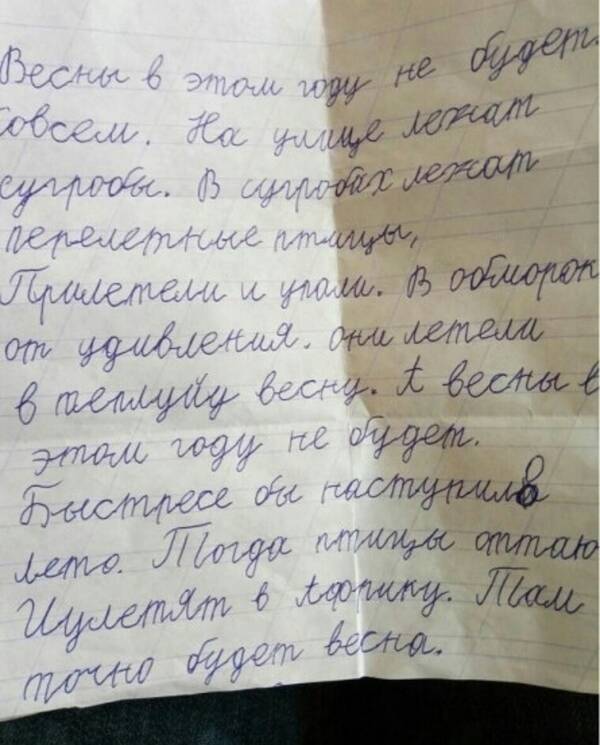 Весны в этом году не будет.
Совсем. На улице лежат
сугробы. В сугробах лежат
перелетные птицы,
Прилетели и упали. В обморок
от удивления. они летели
в теплуйу весну. А весны в
этом году не будет.
Быстресе бы наступило
лето. Тогда птицы оттаю
И улетят в Африку. Там
точно будет весна.